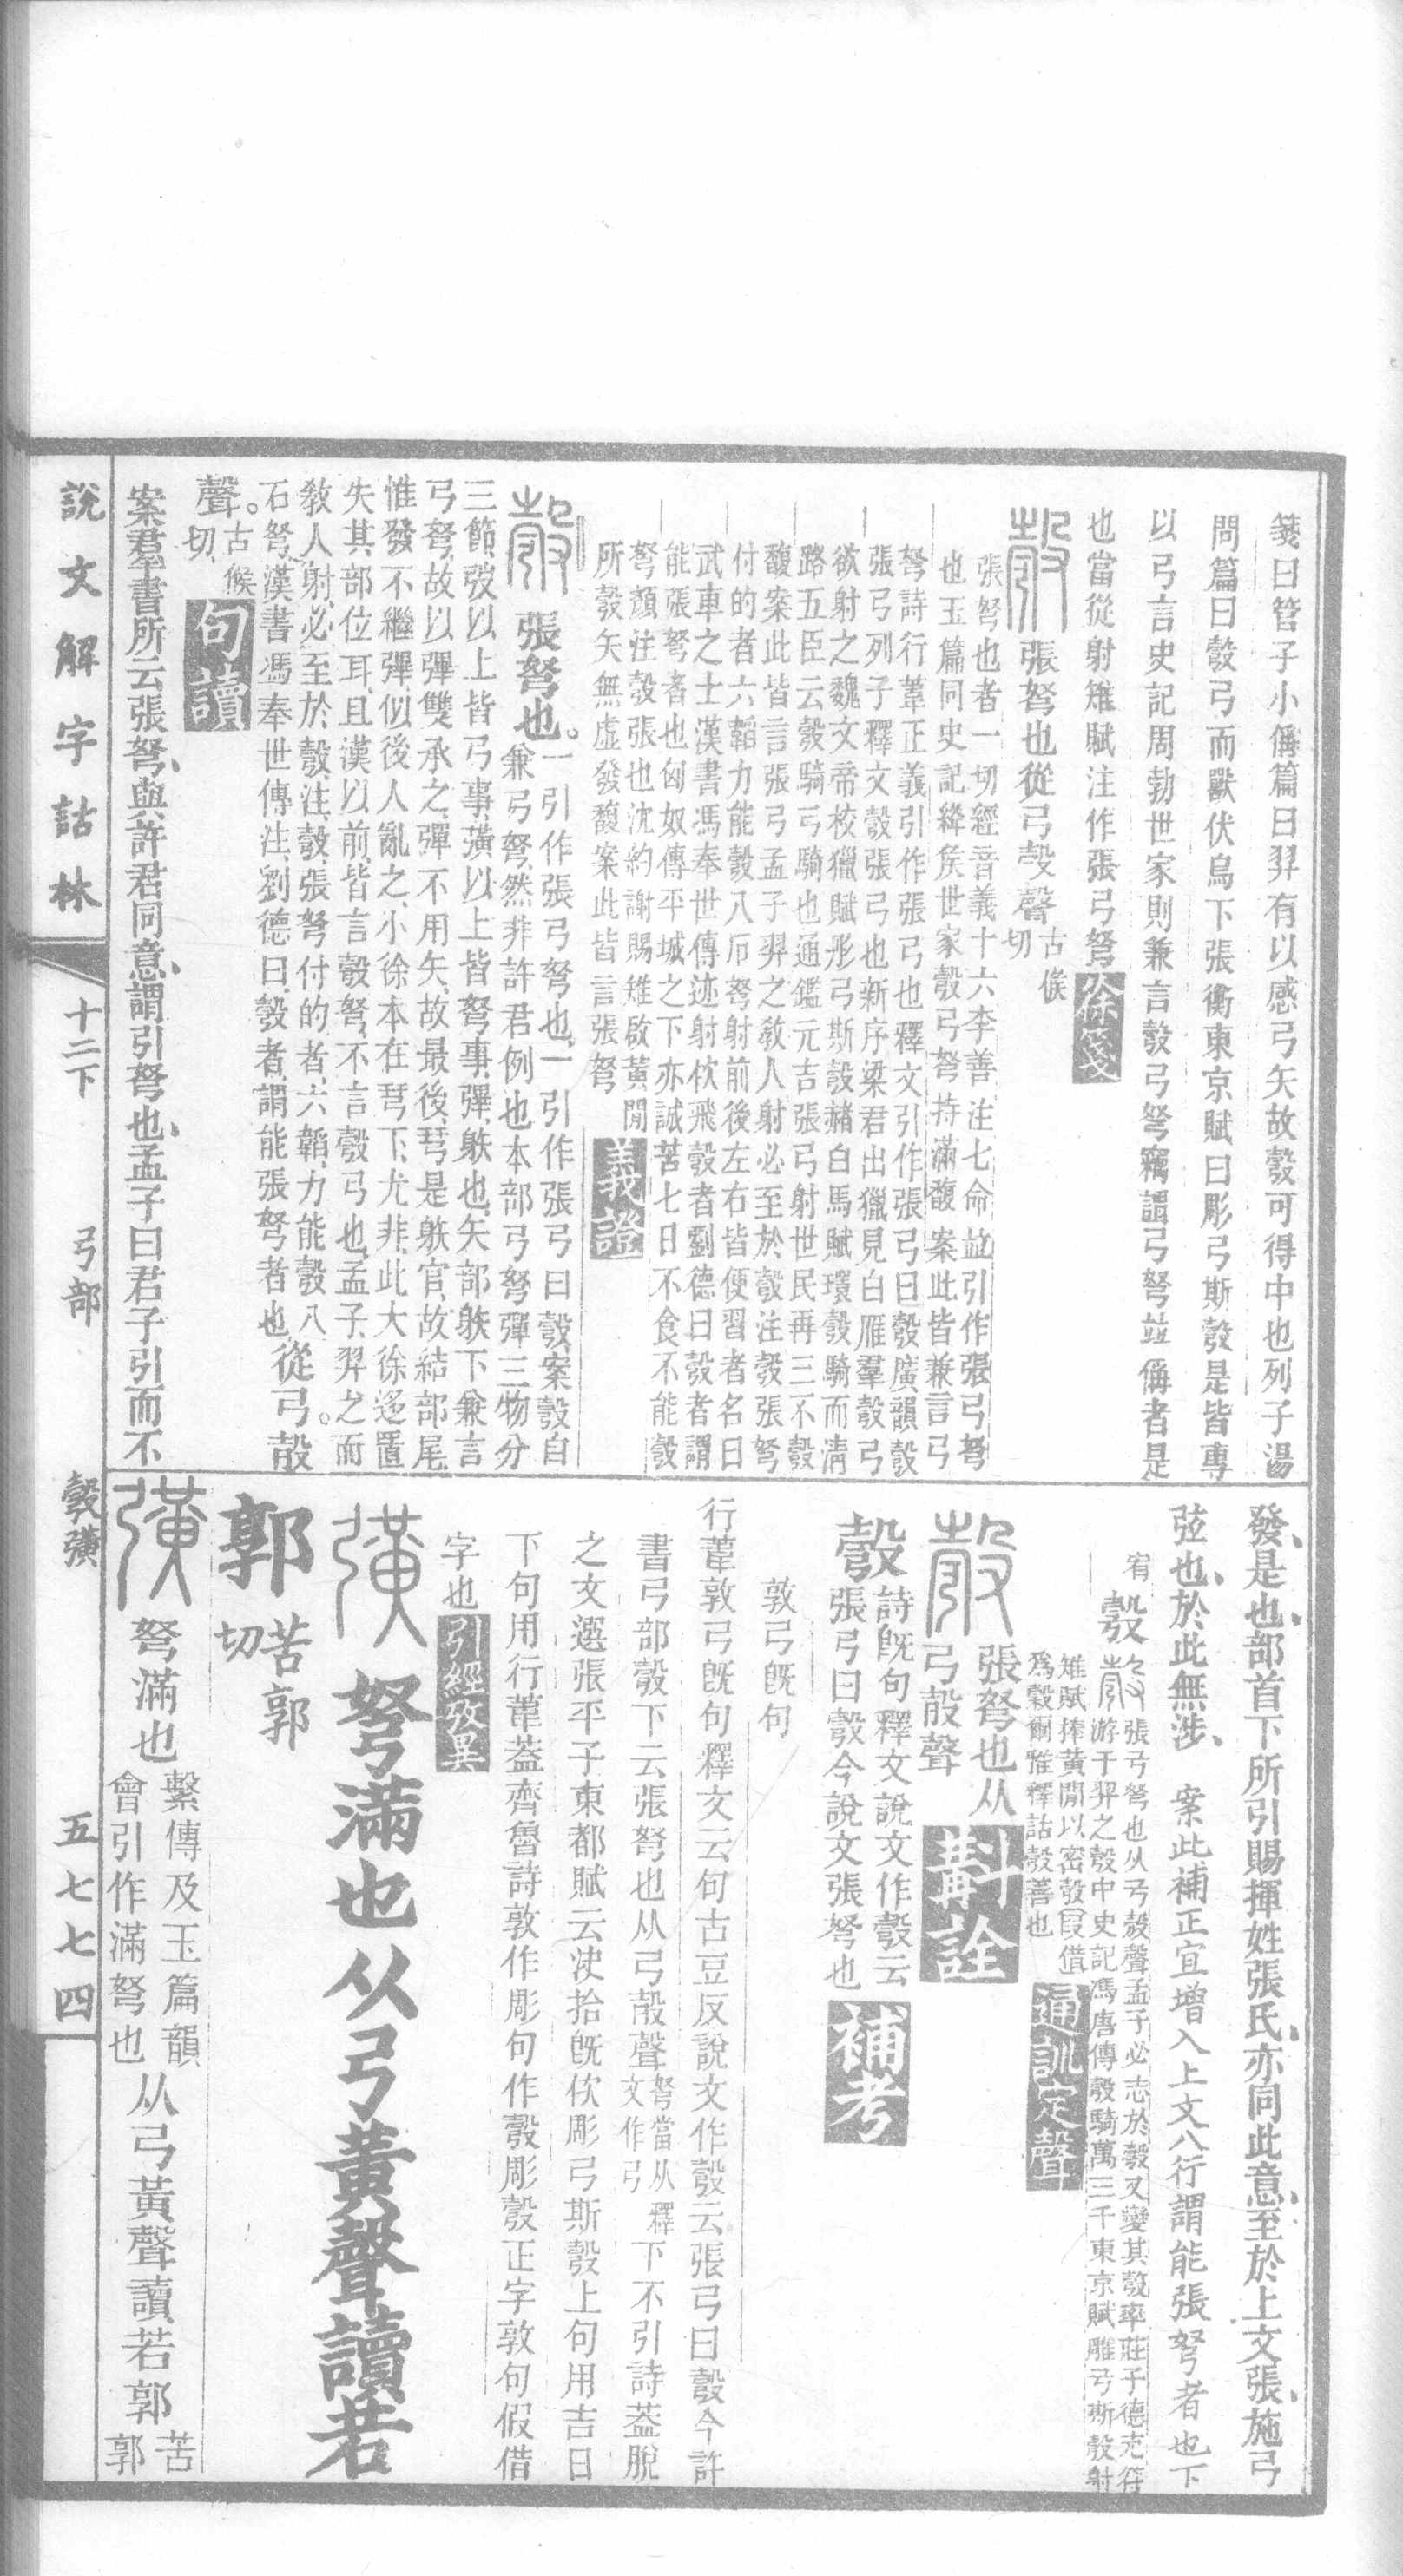 箋曰管子小偁篇曰羿有以感弓矢故彀可得中也列子湯
問篇曰彀弓而獸伏鳥下張衡東京賦曰彫弓斯彀是皆專
以弓言史記周勃世家則兼言彀弓弩竊謂弓弩竝偁者是
也當從射雉賦注作張弓弩 徐箋
張弩也從弓㱿聲 古候切
張弩也者一切經音義十六李善注七命竝引作張弓弩
也玉篇同史記絳侯世家彀弓弩持滿馥案此皆兼言弓
弩詩行葦正義引作張弓也釋文引作張弓曰彀廣韻彀
張弓列子釋文彀張弓也新序梁君出獵見白雁羣彀弓
欲射之魏文帝校獵賦彤弓斯彀赭白馬賦環彀騎而清
路五臣云彀騎弓騎也通鑑元吉張弓射世民再三不彀
馥案此皆言張弓孟子羿之敎人射必至於彀注彀張弩
付的者六韜力能彀八石弩射前後左右皆便習者名曰
武車之士漢書馮奉世傳迹射佽飛彀者劉德曰彀者謂
能張弩者也匈奴傳平城之下亦誠苦七日不食不能彀
弩顏注彀張也沈約謝賜雉啟黃閒
所彀矢無虛發馥案此皆言張弩 義證
張弩也。一引作張弓弩也一引作張弓曰彀案彀自
兼弓弩然非許君例也本部弓弩彈三物分
三節弢以上皆弓事彉以上皆弩事彈躲也矢部躲下兼言
弓弩故以彈雙承之彈不用矢故最後㢷是躲官故結部尾
惟發不繼彈似後人亂之小徐本在㢷下尤非此大徐迻置
失其部位耳且漢以前皆言彀弩不言彀弓也孟子羿之而
敎人射必至於彀注彀張弩付的者六韜力能彀八
石弩漢書馮奉世傳注劉德曰彀者謂能張弩者也從弓。㱿
聲。古候切 句讀
案羣書所云張弩與許君同意謂引弩也孟子曰君子引而不
發是也部首下所引賜揮姓張氏亦同此意至於上文張施弓
弦也於此無涉 案此補正宜增入上文八行謂能張弩者也下
宥 彀 張弓弩也从弓㱿聲孟子必志於彀又變其彀率莊子德充符
游于羿之彀中史記馮唐傳彀騎萬三千東京賦雕弓斯彀射
雉賦捧黃閒以密彀叚借
爲穀爾雅釋詁彀善也 通訓定聲
張弩也从
弓㱿聲 斠詮
彀 詩旣句釋文說文作彀云
張弓曰彀今說文張弩也 補考
敦弓旣句
行葦敦弓旣句釋文云句古豆反說文作彀云張弓曰彀今許
書弓部彀下云張弩也从弓㱿聲 弩當从釋文作弓 下不引詩葢脫
之文選張平子東都賦云決拾旣佽彫弓斯彀上句用吉日
下句用行葦葢齊魯詩敦作彫句作彀彫彀正字敦句假借
字也 引經攷異
彉 弩滿也从弓黃聲讀若
郭 苦郭切
彉 弩滿也 繫傳及玉篇韻會引作滿弩也 从弓黃聲讀若郭 苦郭
說文解字詁林
十二下
弓部
彀彉
五七七四